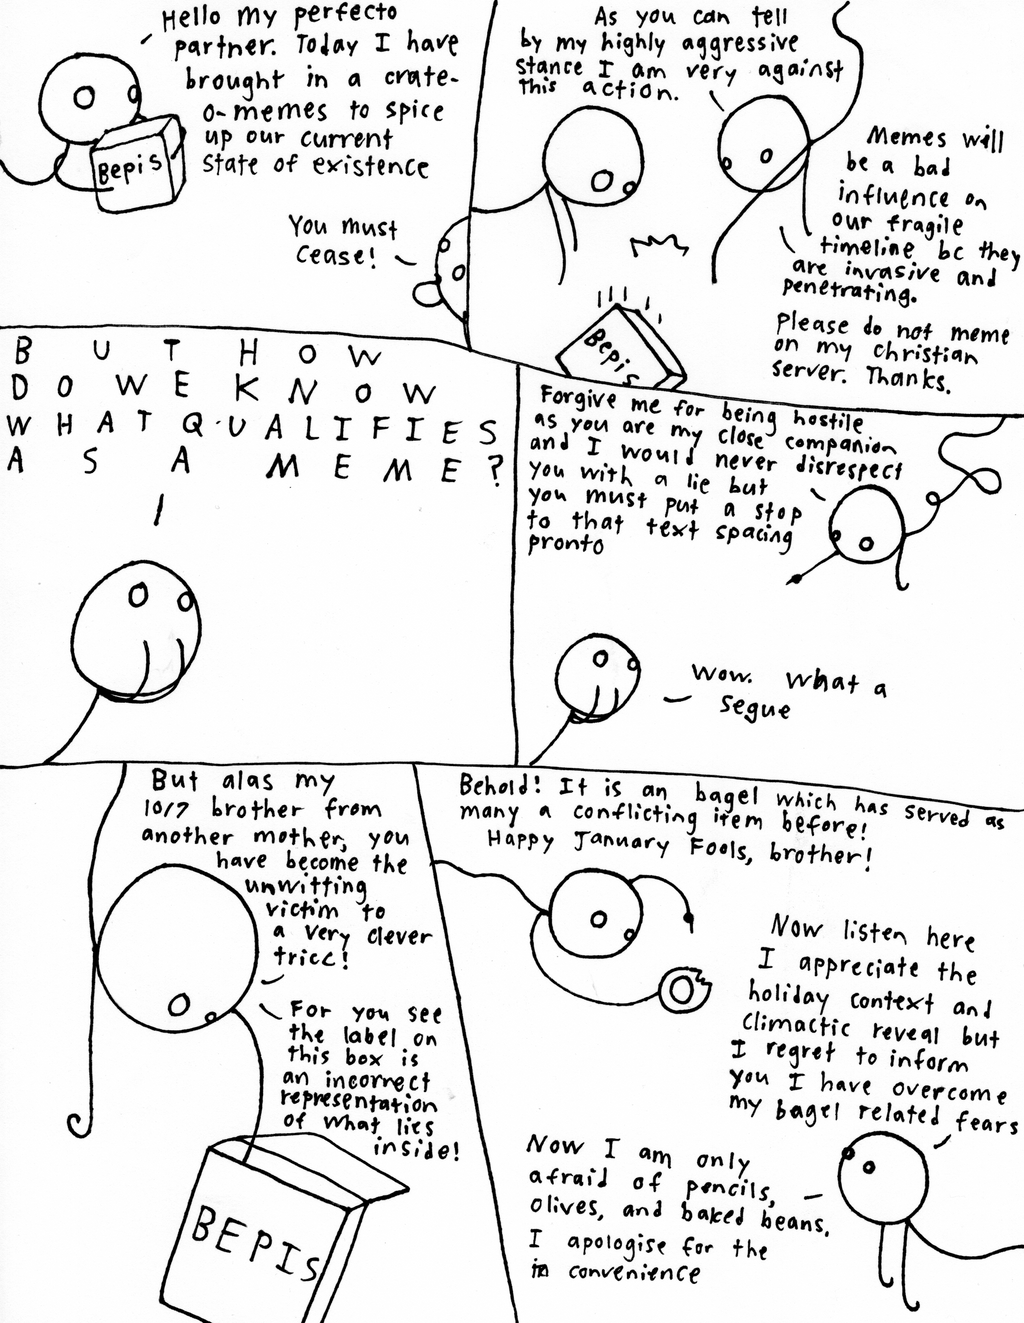 Hello my perfecto
partner. Today I have
brought in a crate-
o-memes to spice
up our current
state of existence
Bepis
You must
cease!
As you can tell
by my highly aggressive
stance I am very against
this action.
Memes will
be a bad
influence on
our fragile
timeline bc they
are invasive and
penetrating.
Please do not meme
on my christian
server. Thanks.
Bepis
BUT HOW
DO WE KNOW
WHAT QUALIFIES
AS A MEME?
Forgive me for being hostile
as you are my close companion
and I would never disrespect
you with a lie but
you must put a stop
to that text spacing
pronto
Wow. What a
segue
But alas my
10/7 brother from
another mother, you
have become the
unwitting
victim to
a very clever
tricc!
For you see
the label on
this box is
an incorrect
representation
of what lies
inside!
BEPIS
Behold! It is an bagel which has served as
many a conflicting item before!
Happy January Fools, brother!
Now listen here
I appreciate the
holiday context and
climactic reveal but
I regret to inform
you I have overcome
my bagel related fears
Now I am only
afraid of pencils,
olives, and baked beans.
I apologise for the
in convenience